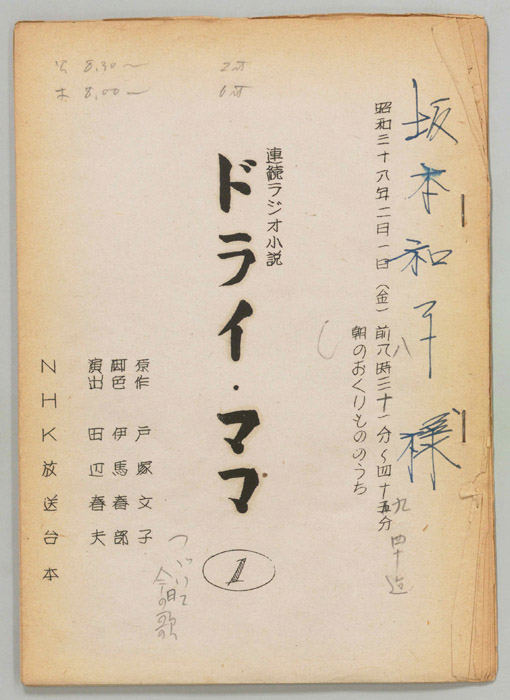 坂本和子様
昭和三十八年二月一日（金）前八時三十一分～四十五分
朝のおくりもののうち
連続ラジオ小説
ドライ・ママ
1
原作 戸塚文子
脚色 伊馬春部
演出 田辺春夫
NHK放送台本
8.30～
8.00～
八
九
四十
つづいて
今日の歌